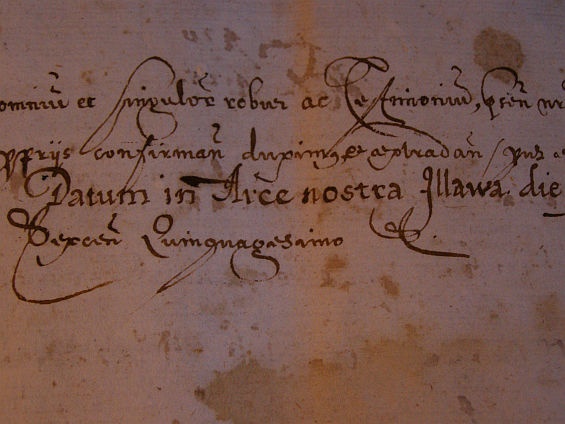 omniũ et singulor̃ robur ac Testimoniũ, p̃sen̄ nr̃
pprijs confirman̄ duximus et extradan̄
Datum in Arce nostra Illawa die
Sexcen̄ Quinquagesimo